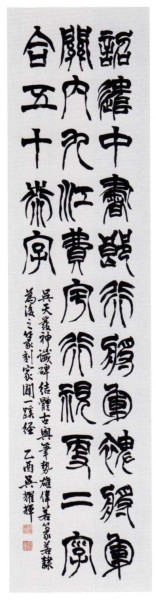 詔遣中書郎行將軍裨將軍
關內九江費宇行視更二字
合五十桼字
吳天發神讖碑結體古奧筆勢雄偉若篆若隸
為後之篆刻家闢一蹊徑 乙酉吳耀輝